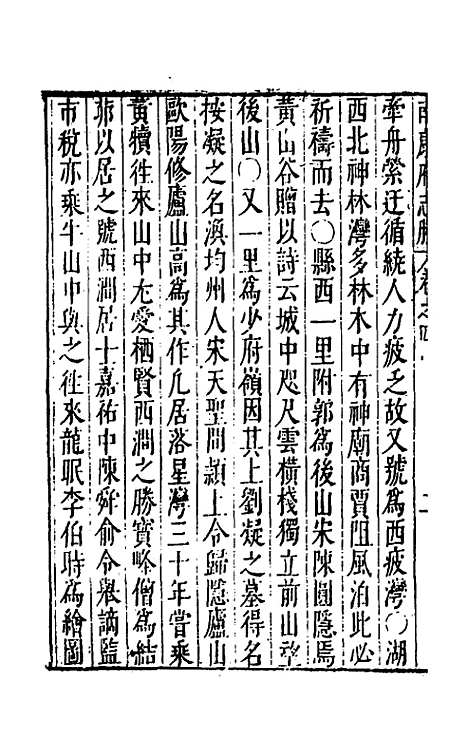 南康府志 卷之四
牽舟縈迂循繞人力疲乏故又號為西疲灣〇湖
西北神林灣多林木中有神廟商賈阻風泊此必
祈禱而去〇縣西一里附郭為後山宋陳圓隱焉
黃山谷贈以詩云城中咫尺雲橫棧獨立前山望
後山〇又一里為少府嶺因其上劉凝之墓得名
按凝之名渙均州人宋天聖間潁上令歸隱廬山
歐陽修廬山高為其作凡居落星灣三十年嘗乘
黃犢徃來山中尤愛栖賢西澗之勝寶峰僧為結
茆以居之號西澗居士嘉祐中陳舜俞令嶽謫監
市稅亦乘牛山中與之徃來龍眠李伯時為繪圖